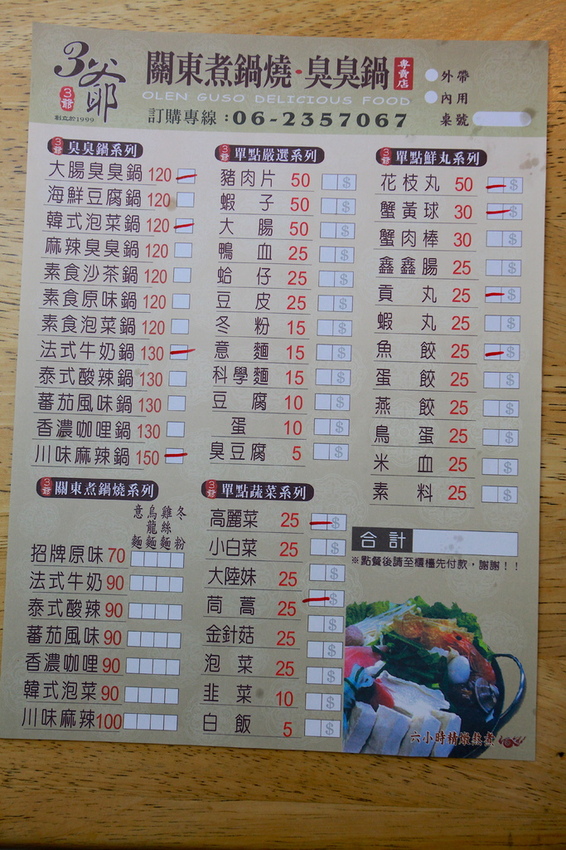 3爺
3爺
創立於1999
關東煮鍋燒·臭臭鍋
專賣店
OLEN GUSO DELICIOUS FOOD
訂購專線:06-2357067
外帶
內用
桌號
3爺 臭臭鍋系列
大腸臭臭鍋 120
海鮮豆腐鍋 120
韓式泡菜鍋 120
麻辣臭臭鍋 120
素食沙茶鍋 120
素食原味鍋 120
素食泡菜鍋 120
法式牛奶鍋 130
泰式酸辣鍋 130
蕃茄風味鍋 130
香濃咖哩鍋 130
川味麻辣鍋 150
3爺 關東煮鍋燒系列
意麵 烏龍麵 雞絲麵 冬粉
招牌原味 70
法式牛奶 90
泰式酸辣 90
蕃茄風味 90
香濃咖哩 90
韓式泡菜 90
川味麻辣 100
3爺 單點嚴選系列
豬肉片 50 $
蝦子 50 $
大腸 50 $
鴨血 25 $
蛤仔 25 $
豆皮 25 $
冬粉 15 $
意麵 15 $
科學麵 15 $
豆腐 10 $
蛋 10 $
臭豆腐 5 $
3爺 單點蔬菜系列
高麗菜 25 $
小白菜 25 $
大陸妹 25 $
茼蒿 25 $
金針菇 25 $
泡菜 25 $
韭菜 10 $
白飯 5 $
3爺 單點鮮丸系列
花枝丸 50 $
蟹黃球 30 $
蟹肉棒 30 $
鑫鑫腸 25 $
貢丸 25 $
蝦丸 25 $
魚餃 25 $
蛋餃 25 $
燕餃 25 $
鳥蛋 25 $
米血 25 $
素料 25 $
合計
※點餐後請至櫃檯先付款,謝謝!!
六小時精燉熬煮